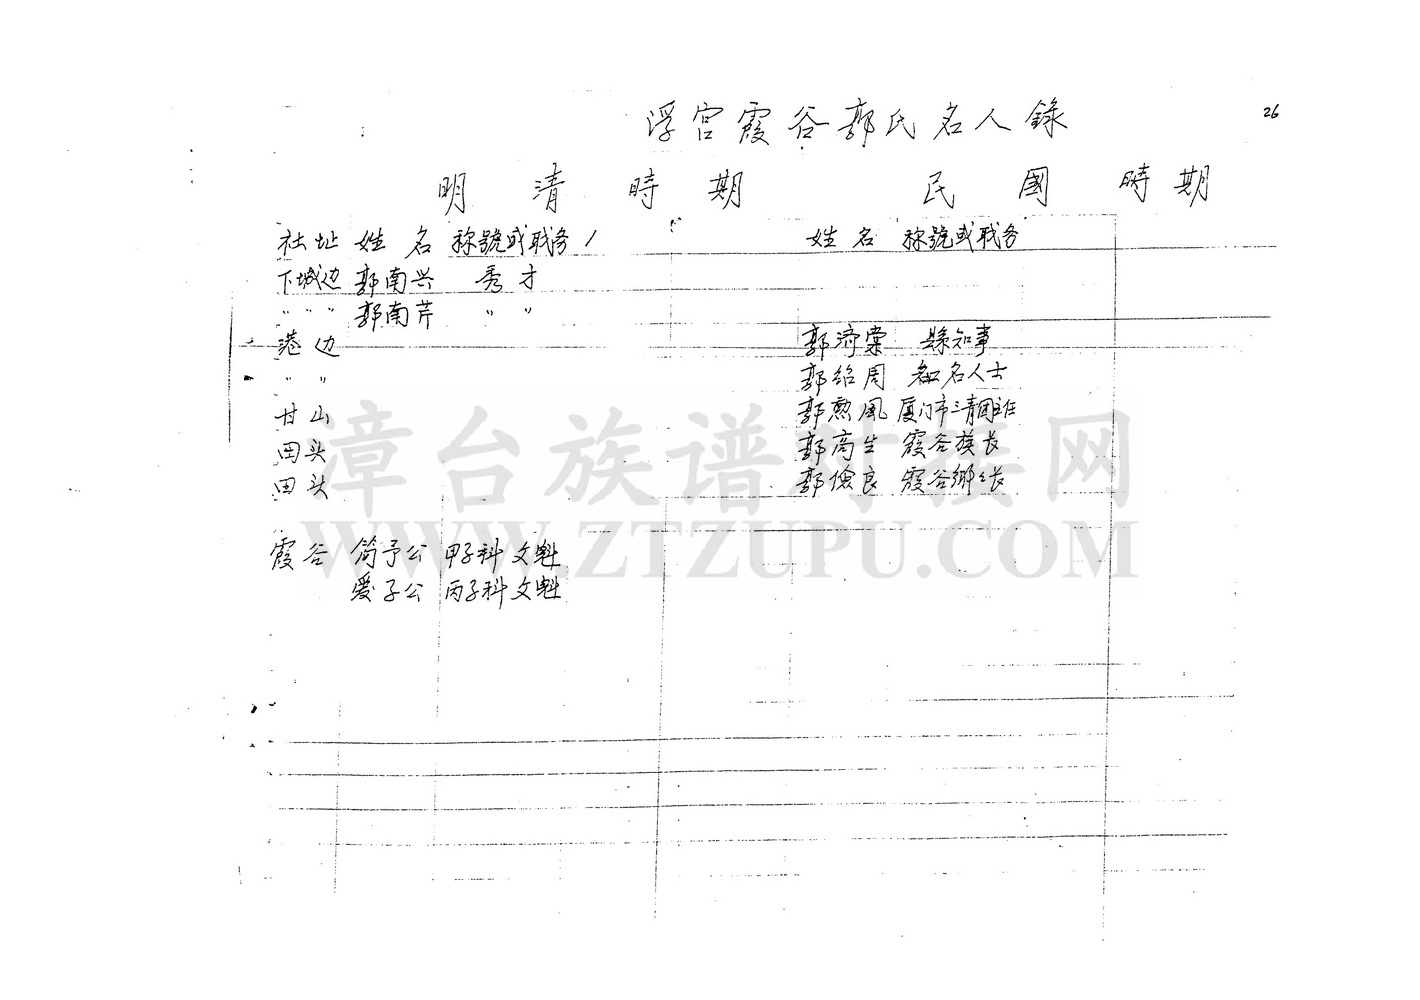 26
浮宫霞谷郭氏名人錄
明清時期 民國時期
社址 姓名 称號或职务 姓名 称號或职务
下城边 郭南兴 秀才
〃〃〃 郭南芹 〃〃
港边 郭济棠 縣知事
〃〃 郭绍周 知名人士
甘山 郭勲風 厦门市三青团主任
田头 郭高生 霞谷族长
田头 郭儉良 霞谷鄉长
霞谷 简予公 甲子科文魁
爱子公 丙子科文魁
漳台族谱对接网
WWW.ZTZUPU.COM